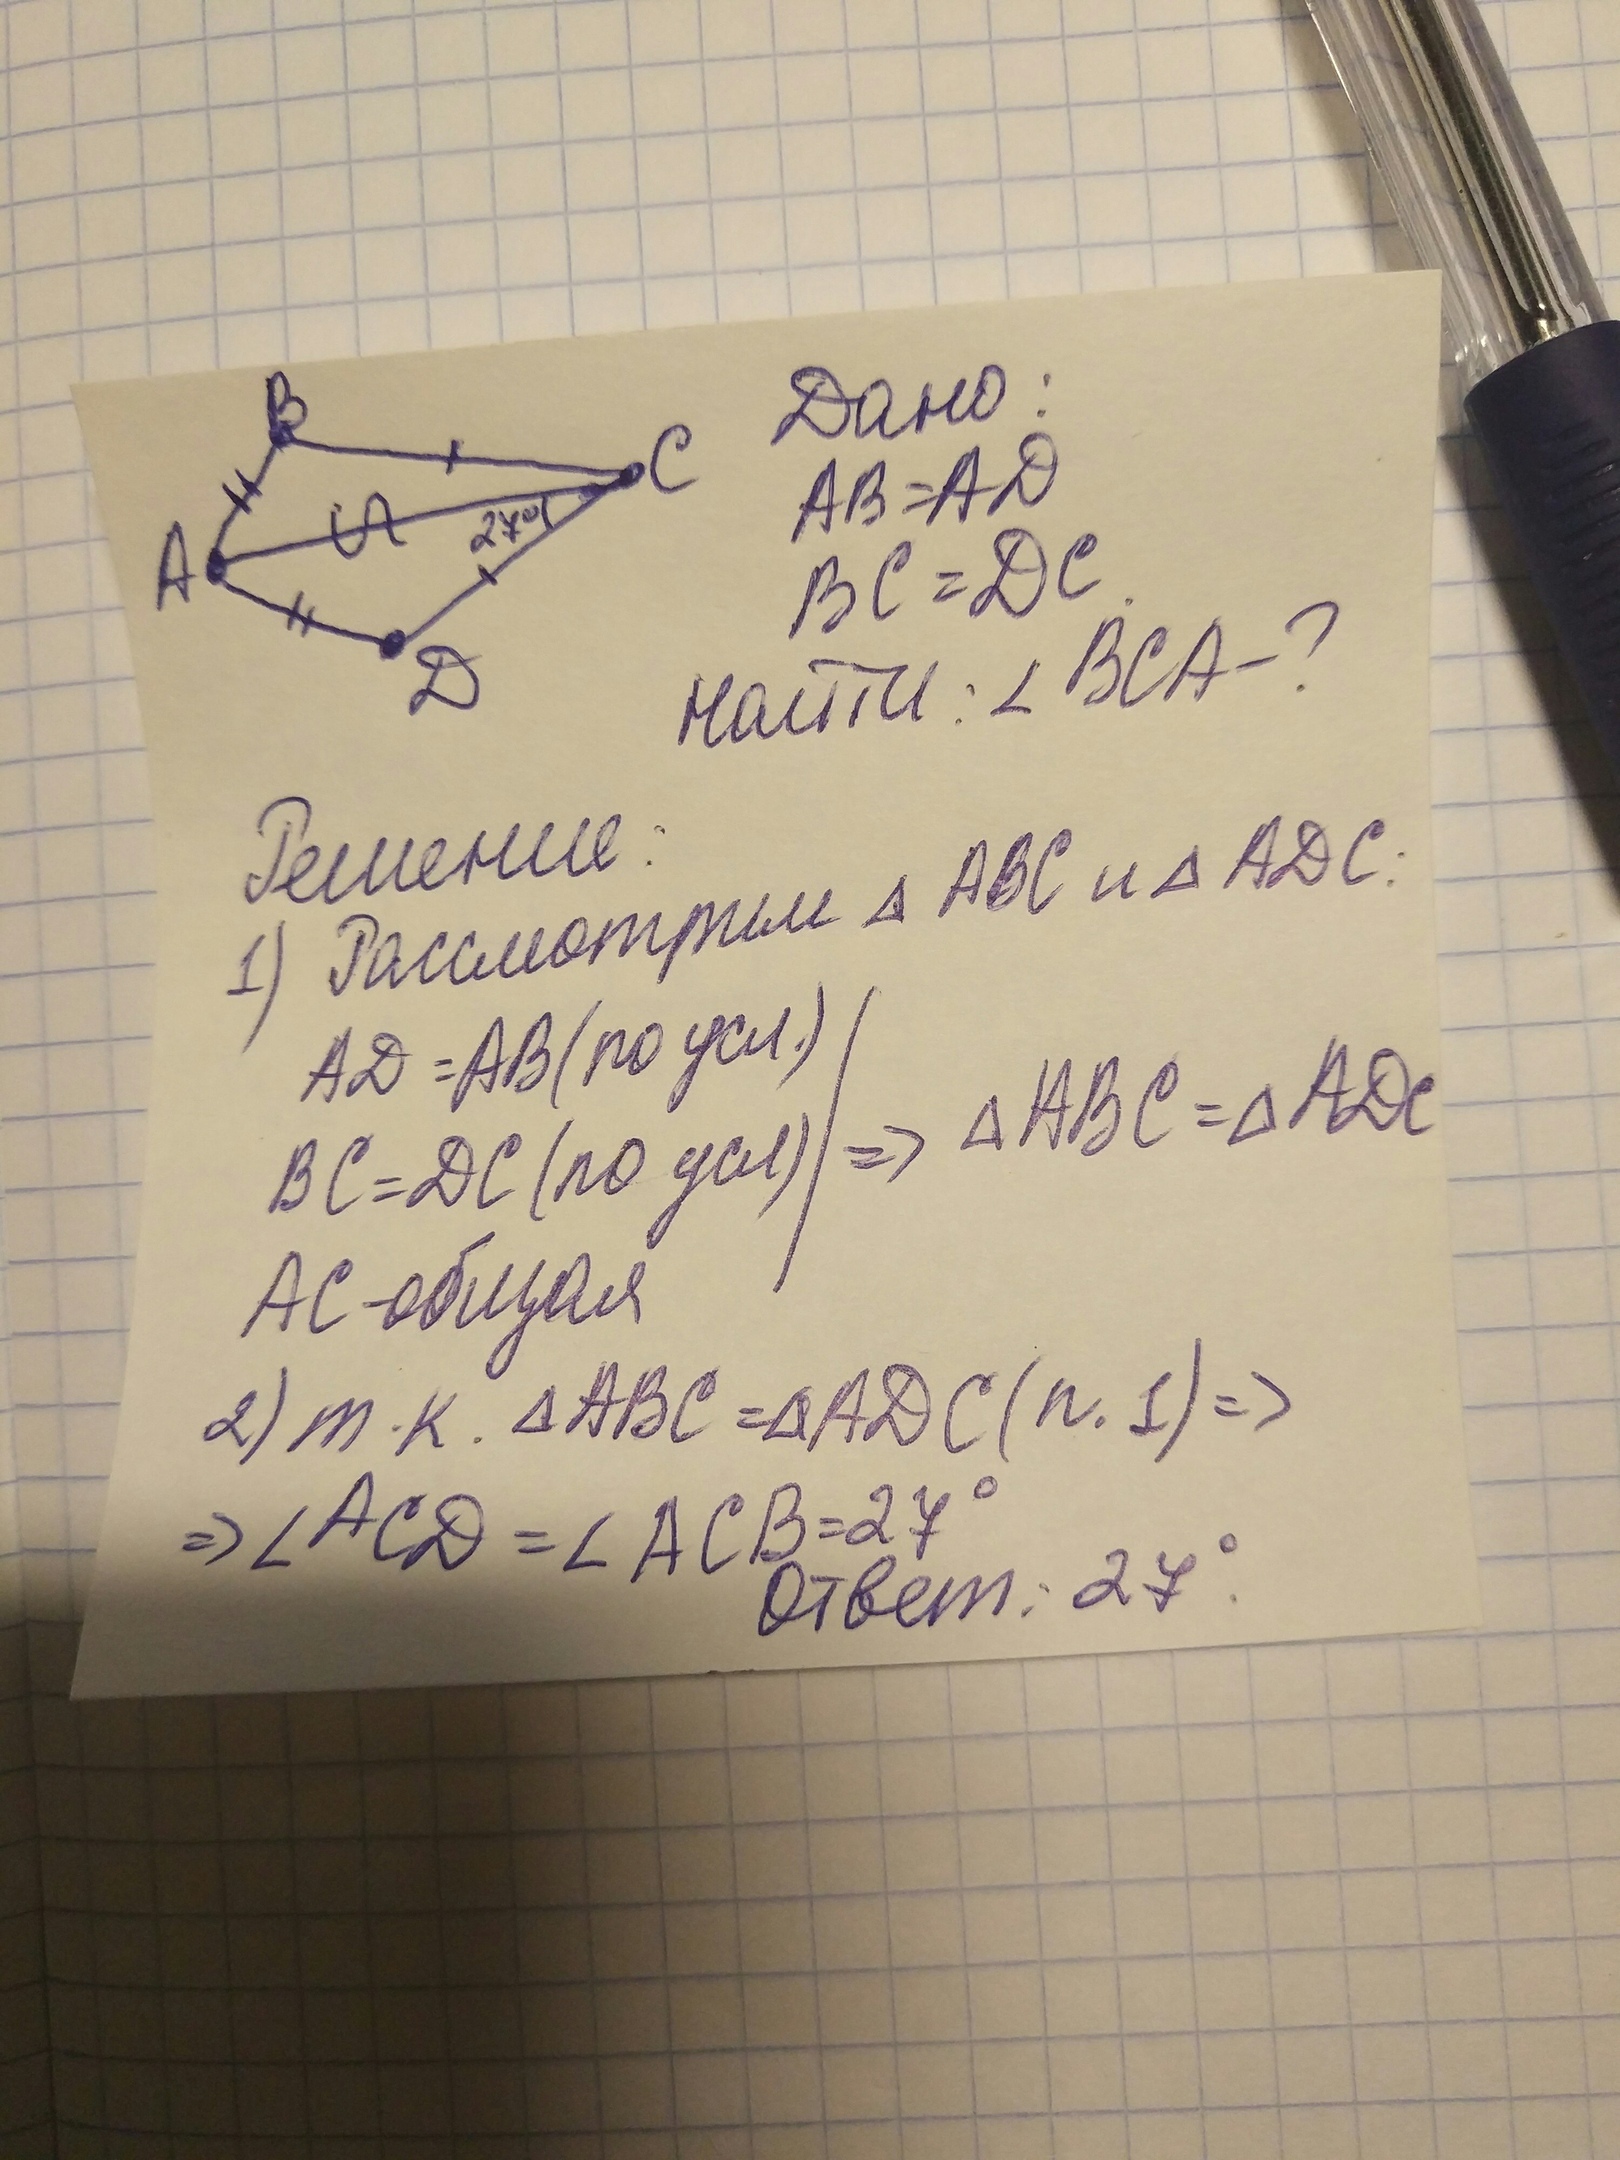 B
C
A
27°
D
Дано:
AB=AD
BC=DC.
Найти: ∠BCA-?
Решение:
1) Рассмотрим △ABC и △ADC:
AD=AB(по усл.)
BC=DC(по усл) => △ABC=△ADC
AC-общая
2) т.к. △ABC=△ADC(п.1)=>
=>∠ACD=∠ACB=27°
Ответ: 27°.